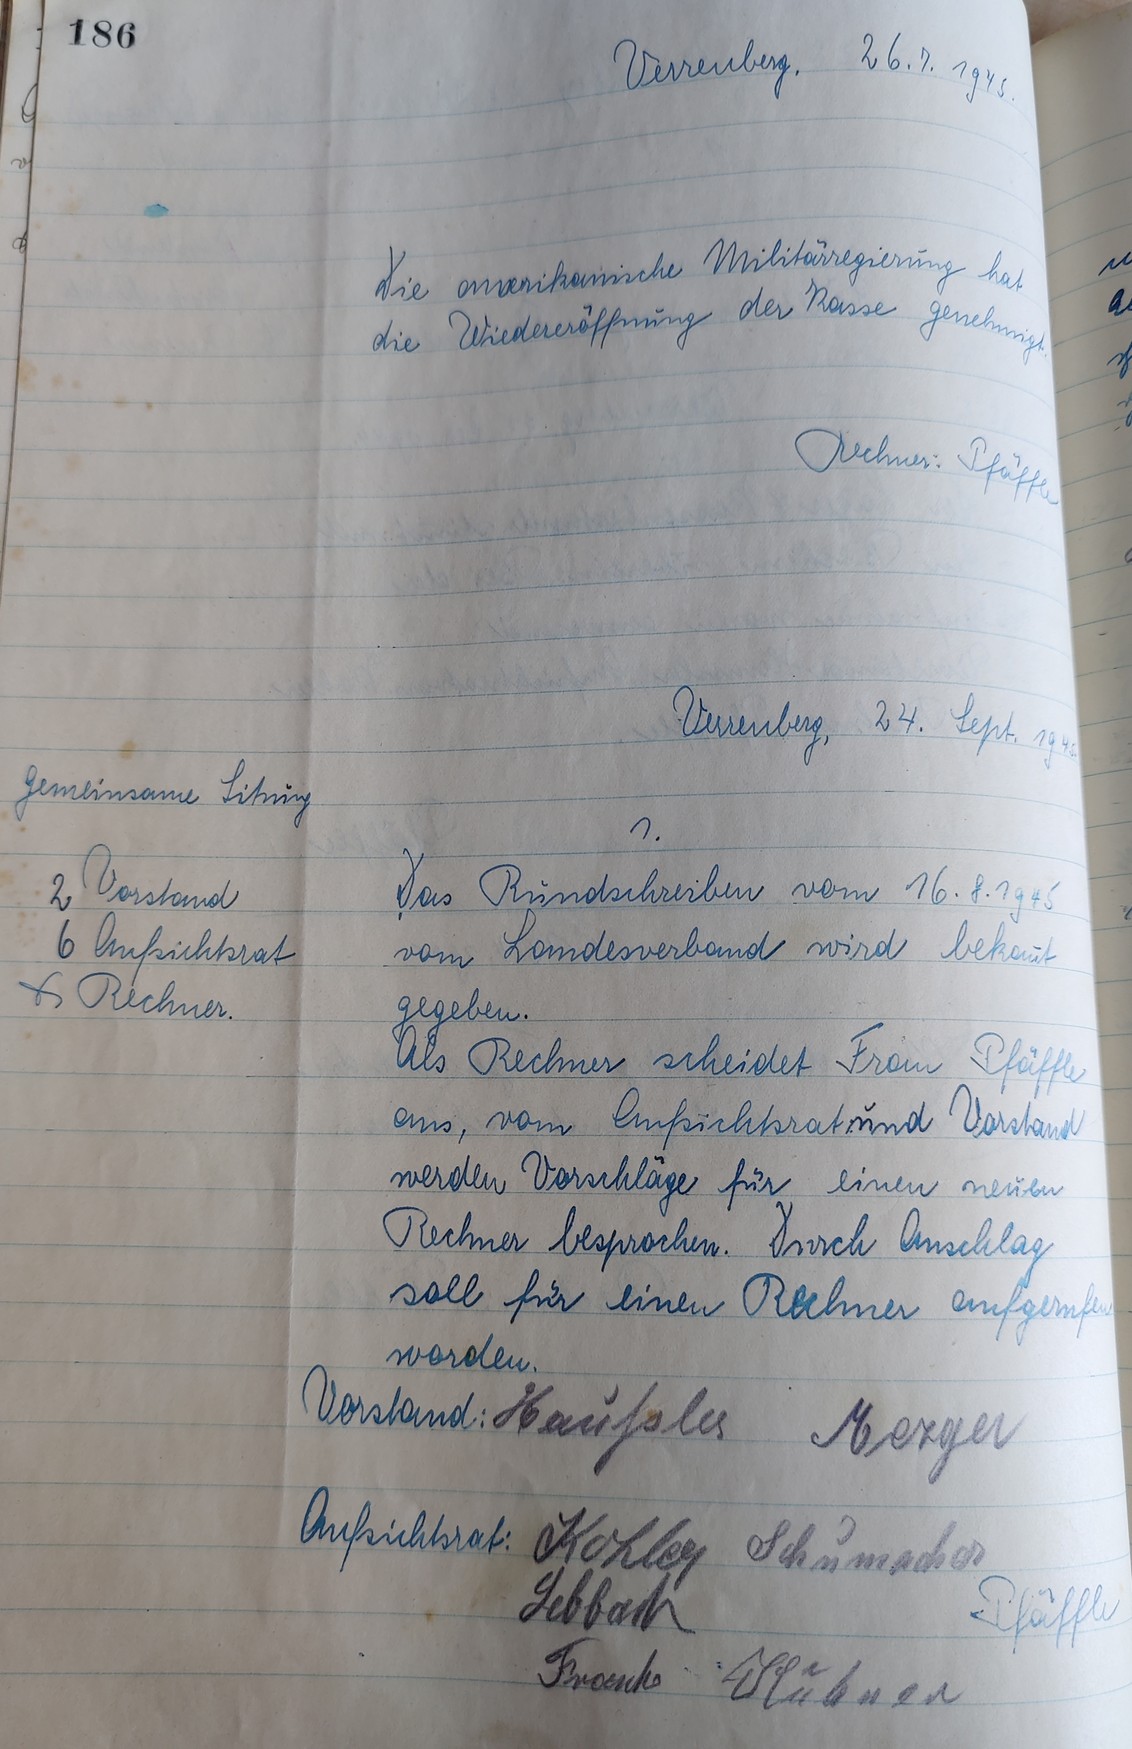 186
Verrenberg, 26.7.1945.
Die amerikanische Militärregierung hat
die Wiedereröffnung der Kasse genehmigt.
Rechner: Pfäffle
Verrenberg, 24. Sept. 1945
gemeinsame Sitzung
2 Vorstand
6 Aufsichtsrat
Rechner.
1.
Das Rundschreiben vom 16.8.1945
vom Landesverband wird bekannt
gegeben.
Als Rechner scheidet Frau Pfäffle
aus, vom Aufsichtsrat und Vorstand
werden Vorschläge für einen neuen
Rechner besprochen. Durch Anschlag
soll für einen Rechner aufgerufen
worden.
Vorstand: Häussler Mezger
Aufsichtsrat: Kohler Schumacher
Pfäffle
Frank